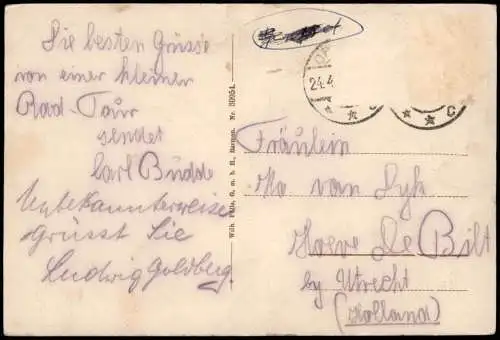 Die besten Grüsse
von einer kleinen
Rad-Tour
sendet
Carl Budde
Unbekannterweise
grüsst Sie
Ludwig Goldberg.
Nr. 30954.
24.4
C
Fräulein
van Dyk
Hoeve De Bilt
by Utrecht
(Holland)